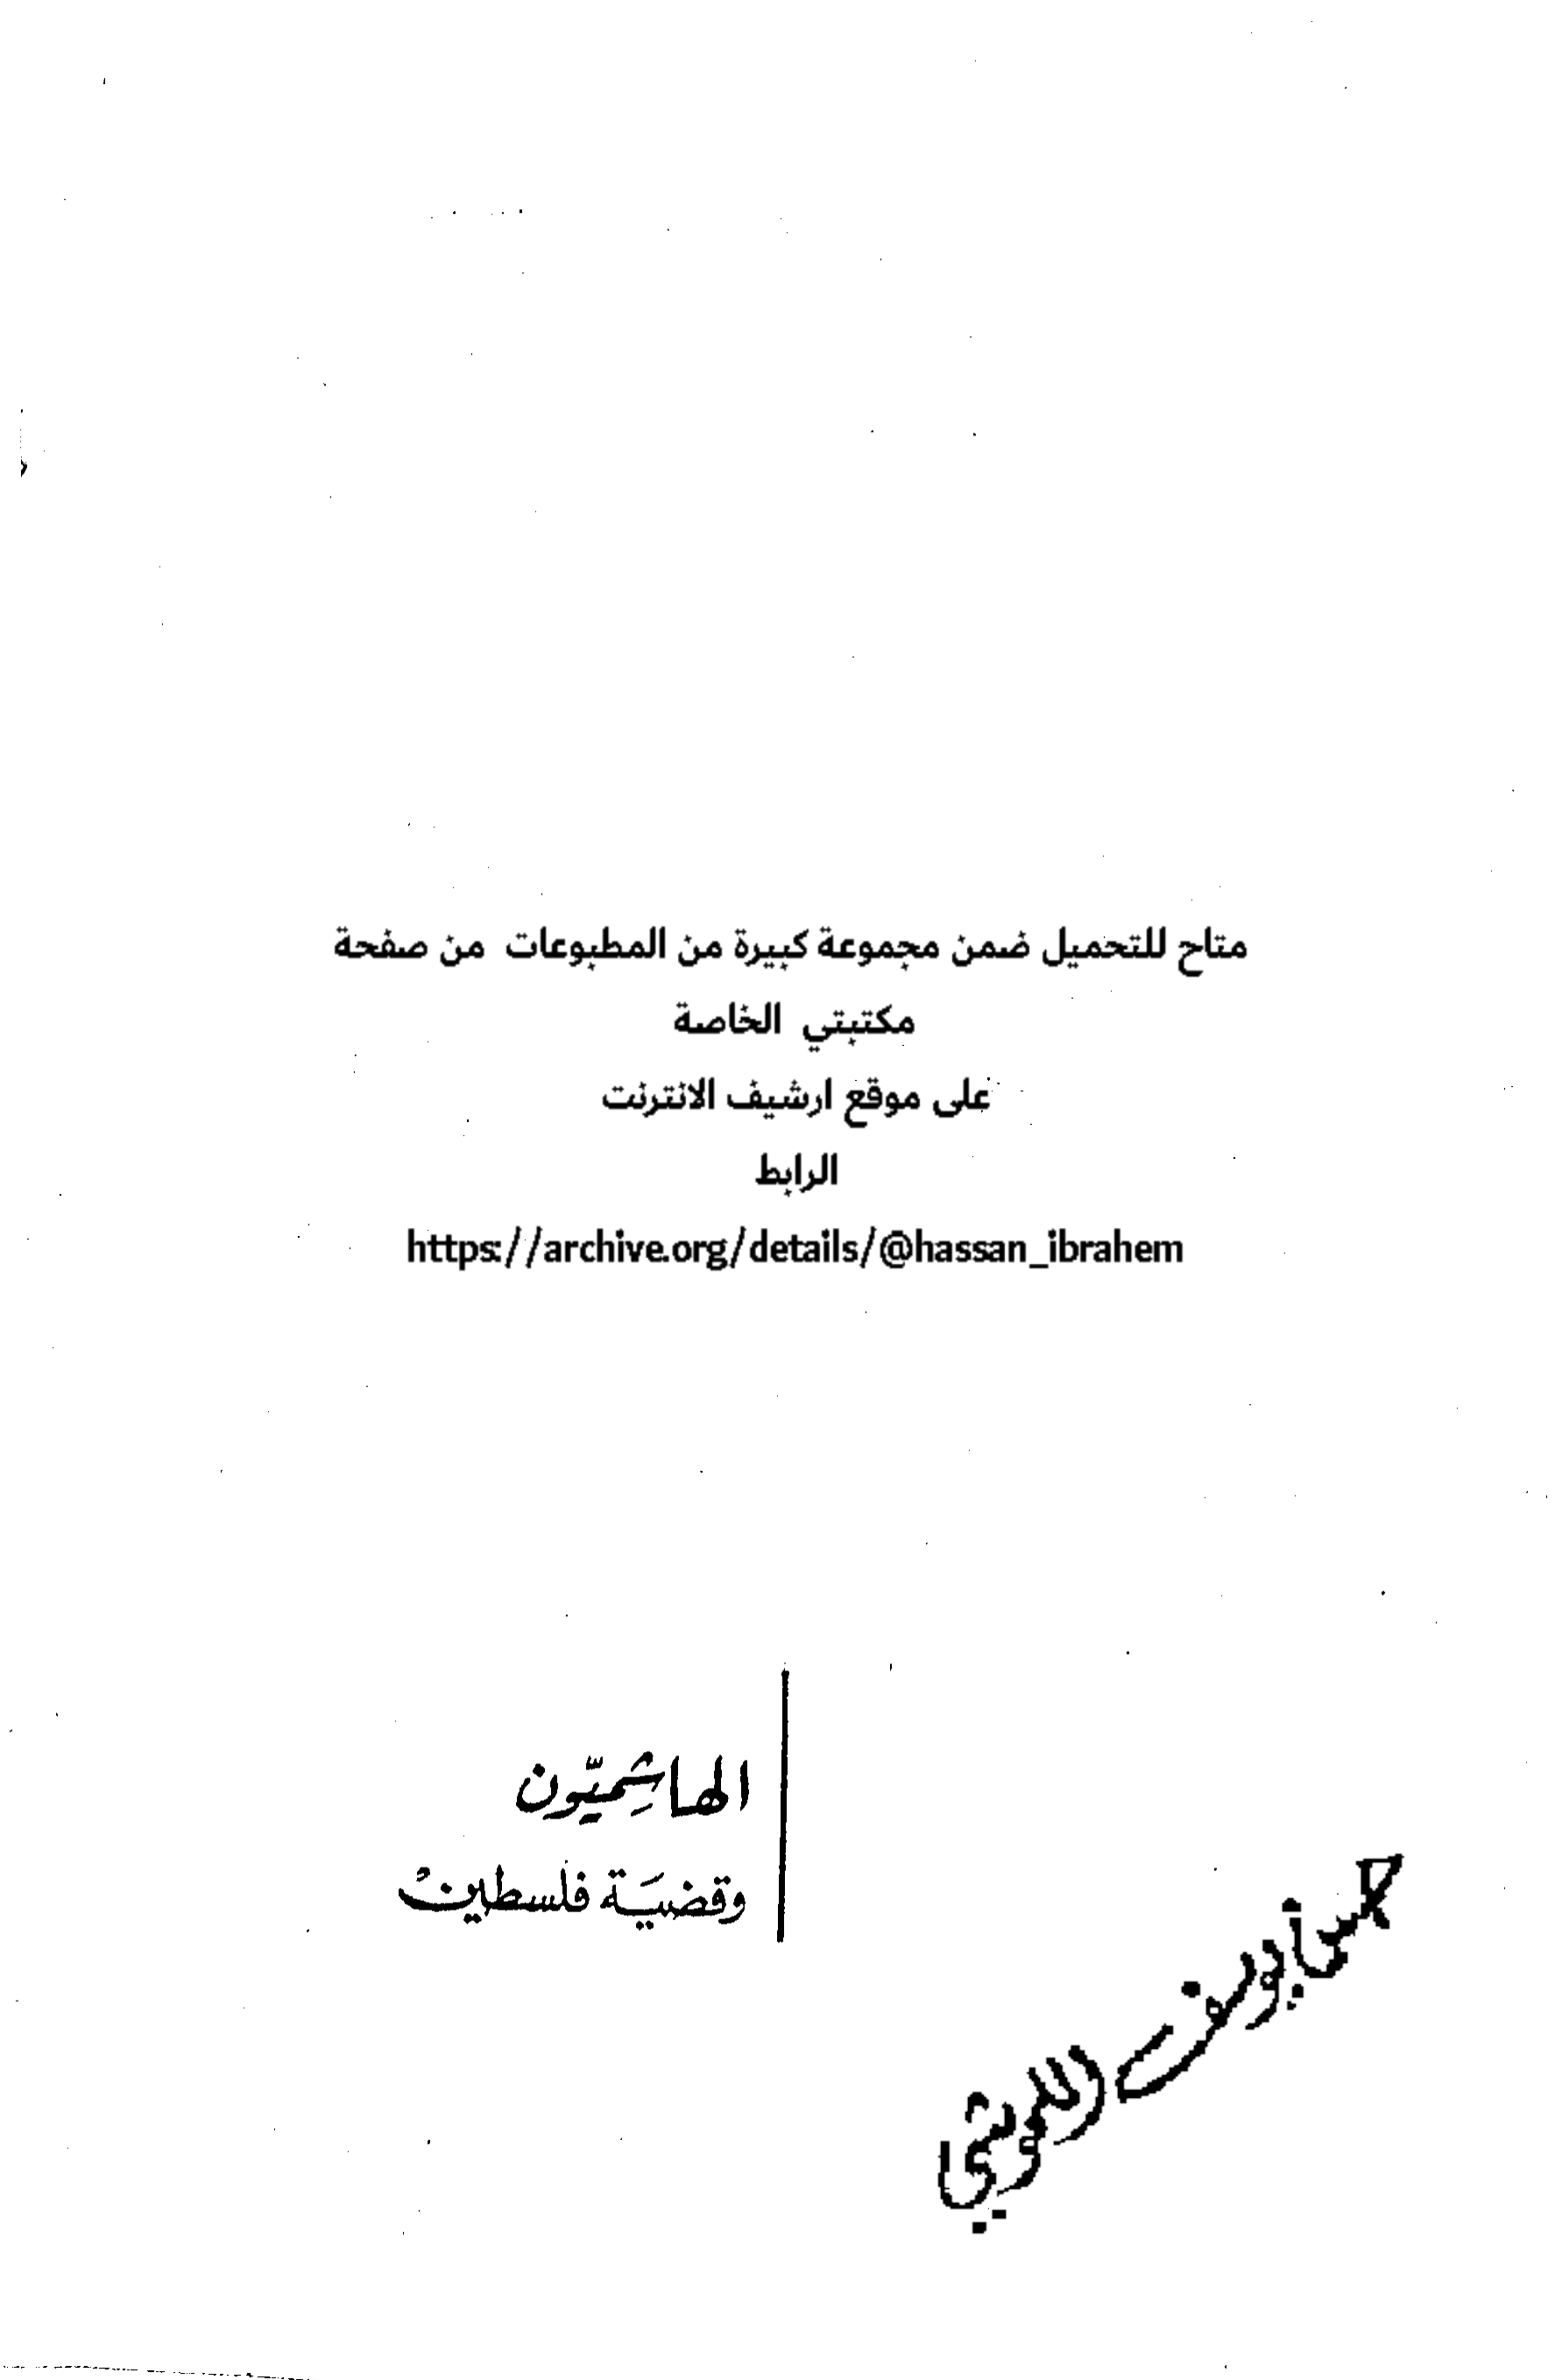 متاح للتحميل ضمن مجموعة كبيرة من المطبوعات من صفحة
مكتبتي الخاصة
على موقع ارشيف الانترنت
الرابط
https://archive.org/details/@hassan_ibrahem
الهاشِميّون
وقضيَة فلسطين